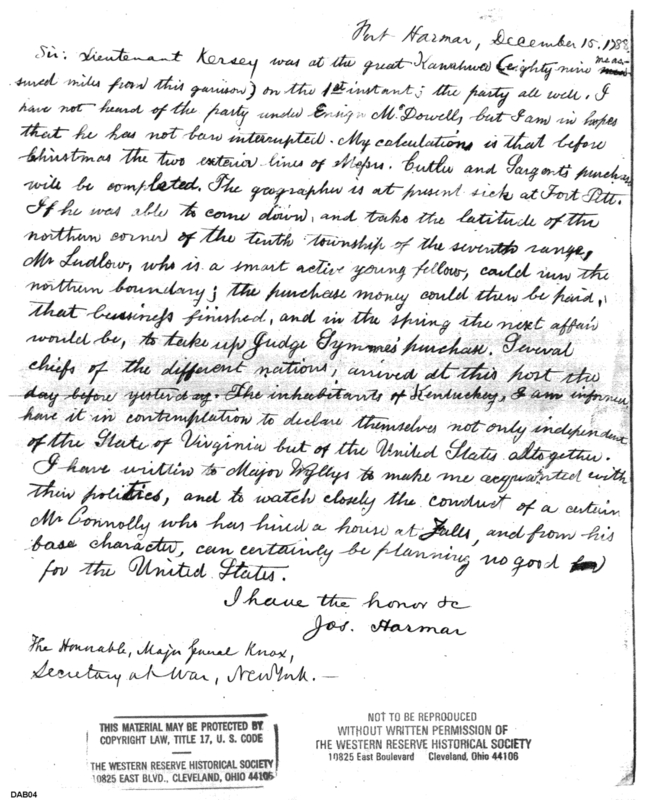 Fort Harmar, December 15. 1788.
Sir: Lieutenant Kersey was at the great Kanahwa (eighty nine meas-
sured miles from this garrison) on the 1st instant; the party all well. I
have not heard of the party under Ensign McDowell, but I am in hopes
that he has not been interrupted. My calculations is that before
Christmas the two exterior lines of Messrs. Cutler and Sargent's purchase
will be completed. The geographer is at present sick at Fort Pitt.
If he was able to come down, and take the latitude of the
northern corner of the tenth township of the seventh range,
Mr Ludlow, who is a smart active young fellow, could run the
northern boundary; the purchase money could then be paid,
that business finished, and in the spring the next affair
would be, to take up Judge Symmes' purchase. Several
chiefs of the different nations, arrived at this post the
day before yesterday. The inhabitants of Kentuckey, I am informed
have it in contemplation to declare themselves not only independent
of the State of Virginia but of the United States altogether.
I have written to Major Wyllys to make me acquainted with
their politics, and to watch closely the conduct of a certain
Mr Connolly who has hired a house at Falls, and from his
base character, can certainly be planning no good
for the United States.
I have the honor &c
Jos. Harmar
The Honorable, Major General Knox,
Secretary at War, New York. —
THIS MATERIAL MAY BE PROTECTED BY
COPYRIGHT LAW, TITLE 17, U. S. CODE
THE WESTERN RESERVE HISTORICAL SOCIETY
10825 EAST BLVD., CLEVELAND, OHIO 44106
NOT TO BE REPRODUCED
WITHOUT WRITTEN PERMISSION OF
THE WESTERN RESERVE HISTORICAL SOCIETY
10825 East Boulevard Cleveland, Ohio 44106
DAB04